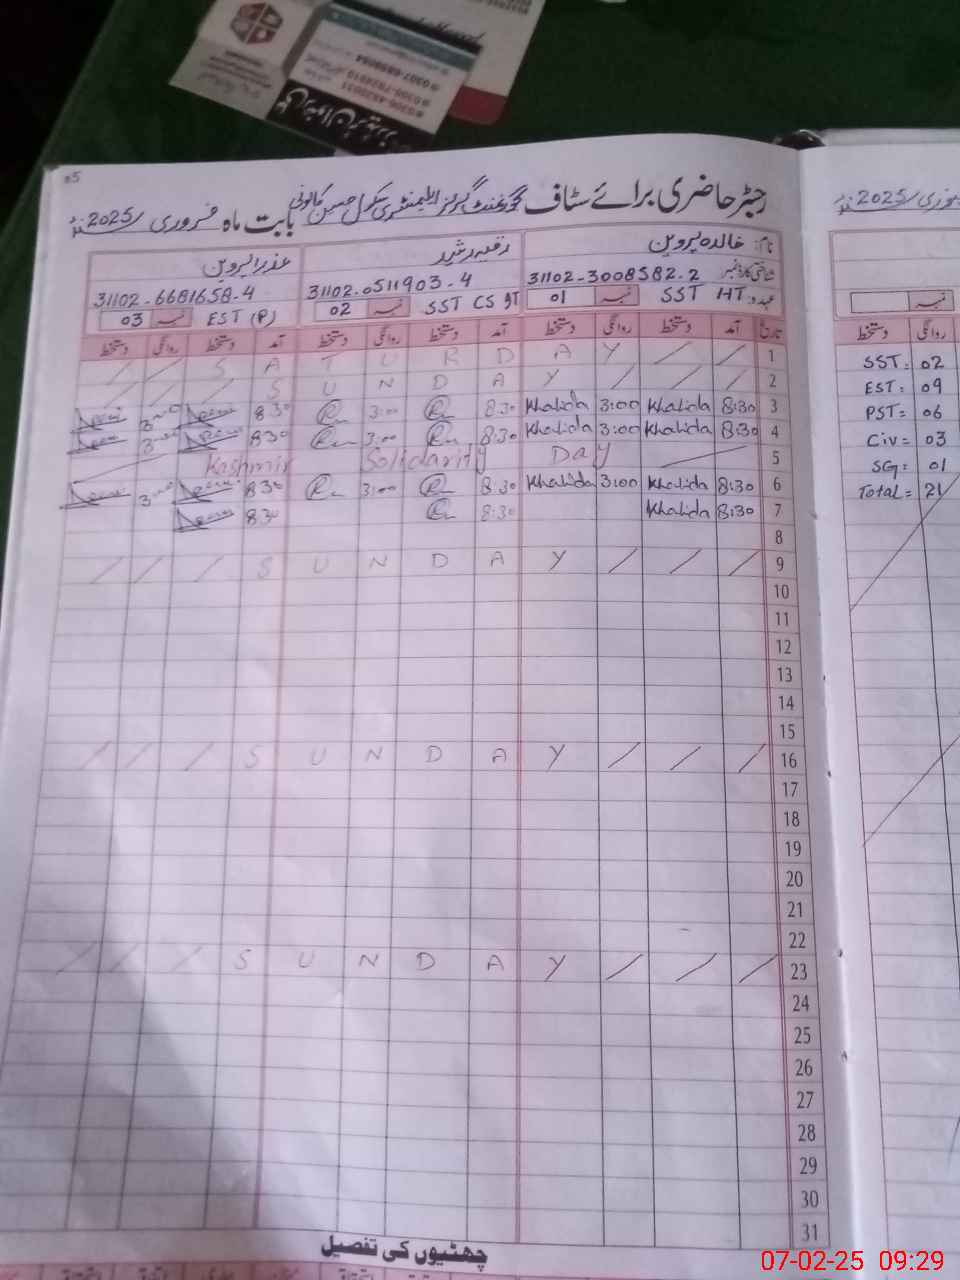 0306-4520031
0305-7824010
0307-6858084
05
رجسٹر حاضری برائے سٹاف گورنمنٹ گرلز ایلیمنٹری سکول حسین کالونی بابت ماہ فروری /2025ء
نام: خالدہ پروین
شناختی کارڈ نمبر 31102-3008582-2
عہدہ: SST HT نمبر 01
رقیہ رشید
31102-0511903-4
SST CS نمبر 02
عذرا پروین
31102-6681658-4
EST (P) نمبر 03
تاریخ آمد دستخط روانگی دستخط آمد دستخط روانگی دستخط آمد دستخط روانگی دستخط
/ / S A T U R D A Y / / 1
/ / / S U N D A Y / / / 2
8:30 3:00 8:30 Khalida 3:00 Khalida 8:30 3
8:30 3:00 8:30 Khalida 3:00 Khalida 8:30 4
Kashmir Solidarity Day 5
8:30 3:00 8:30 Khalida 3:00 Khalida 8:30 6
8:30 8:30 Khalida 8:30 7
8
/ / / S U N D A Y / / / 9
10
11
12
13
14
15
/ / / S U N D A Y / / / 16
17
18
19
20
21
22
/ / / S U N D A Y / / / 23
24
25
26
27
28
29
30
31
چھٹیوں کی تفصیل
فروری /2025ء
نمبر
دستخط روانگی
SST: 02
EST: 09
PST: 06
Civ= 03
SG: 01
Total= 21
07-02-25 09:29